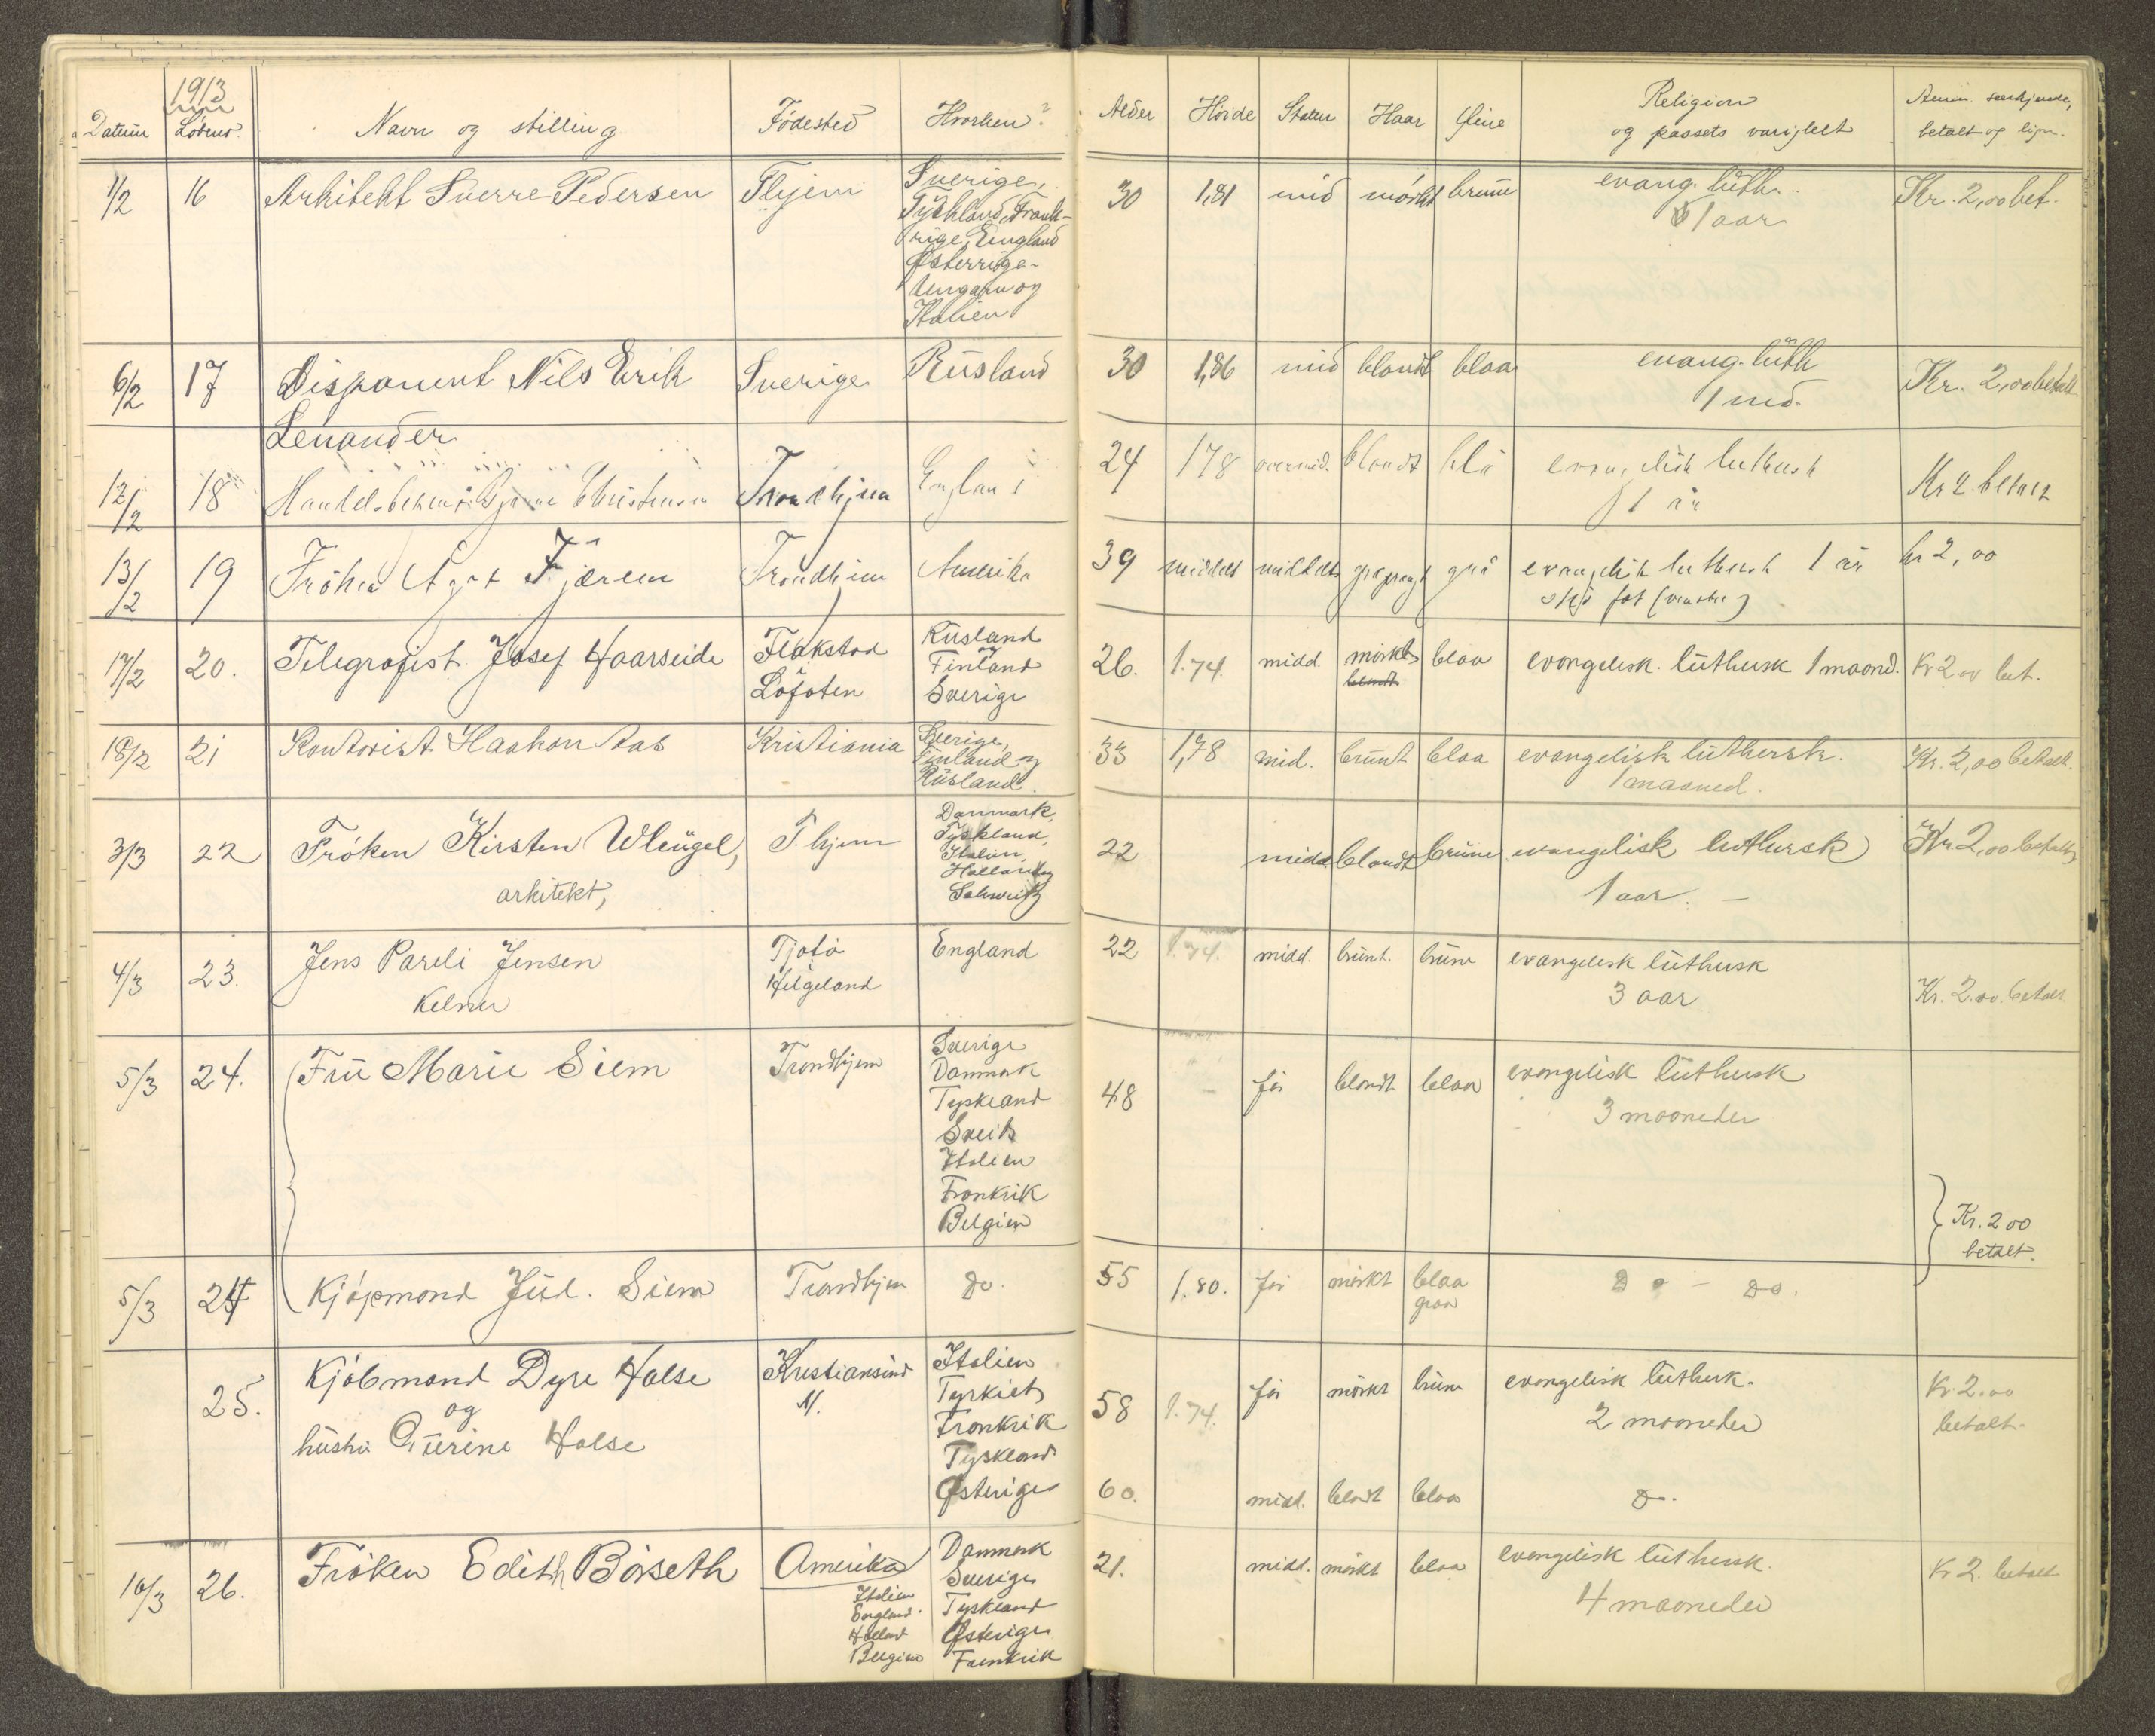 1913
Datum Løbenr. Navn og stilling Fødested Hvorhen? Alder Høide Statur Haar Øine Religion og passets varighet Anm. saerkjende, betalt og lign.
1/2 16 Arkitekt Sverre Pedersen Thjem Sverige, 30 1,81 mid mørkt brune evang. luth. Kr. 2,00 bet.
Tyskland, Frank- 1 aar
rige, England
Østerrige-
Ungarn og
Italien
6/2 17 Disponent Nils Erik Sverige Rusland 30 1,86 mid blondt blaa evang. luth Kr. 2,00 betalt
Lenander 1 md.
12/2 18 Handelsbetjent Bjarne Christensen Trondhjem England 24 178 overmid. blondt blå evangelisk luthersk Kr 2 betalt
1 år
13/2 19 Frøken Agot Fjærem Trondhjem Amerika 39 middels middels grå evangelisk luthersk 1 år kr 2,00
fot (venstre)
17/2 20. Telegrafist Josef Haarseide Flakstad Rusland og 26. 1.74 midd. mørkt blaa evangelisk luthersk 1 maaned. Kr 2 00 bet.
i Finland blondt
Lofoten Sverige
18/2 21 Kontorist Haakon Aas Kristiania Sverige, 33 1,78 mid. brunt blaa evangelisk luthersk. Kr. 2,00 betalt.
Finland og 1 maaned.
Rusland.
3/3 22 Frøken Kirsten Wleügel, T.hjem Danmark, 22 midd blondt brune evangelisk luthersk Kr. 2,00 betalt
arkitekt, Tyskland, 1 aar. –
Italien,
Holland og
Schweitz
4/3 23. Jens Pareli Jensen Tjøtø England 22 1.74. midd. brunt. brune evangelisk luthersk Kr. 2.00. betalt
Kelner Helgeland 3 aar
5/3 24. Fru Marie Siem Trondhjem Sverige 48 før blondt blaa evangelisk luthersk
Danmark 3 maaneder
Tyskland
Sveits
Italien
Frankrik
Belgien
Kr. 2 00
betalt.
5/3 24 Kjøpmand Jul. Siem Trondhjem do. 55 1.80. før mørkt blaa Do – Do.
graa
25. Kjøbmand Dyre Halse Kristiansund Italien 58 1.74. før mørkt brune evangelisk luthersk. Kr. 2.00
og N. Tyrkiet 2 maaneder betalt.
hustru Gurine Halse Frankrik
Tyskland
Østerige 60. midd. blondt blaa Do.
10/3 26. Frøken Edith Börseth Amerika Danmark 21. midd. mørkt blaa evangelisk luthersk. Kr 2. betalt
Italien Sverige 4 maaneder
England. Tyskland
Holland Østerige
Belgien Frankrik